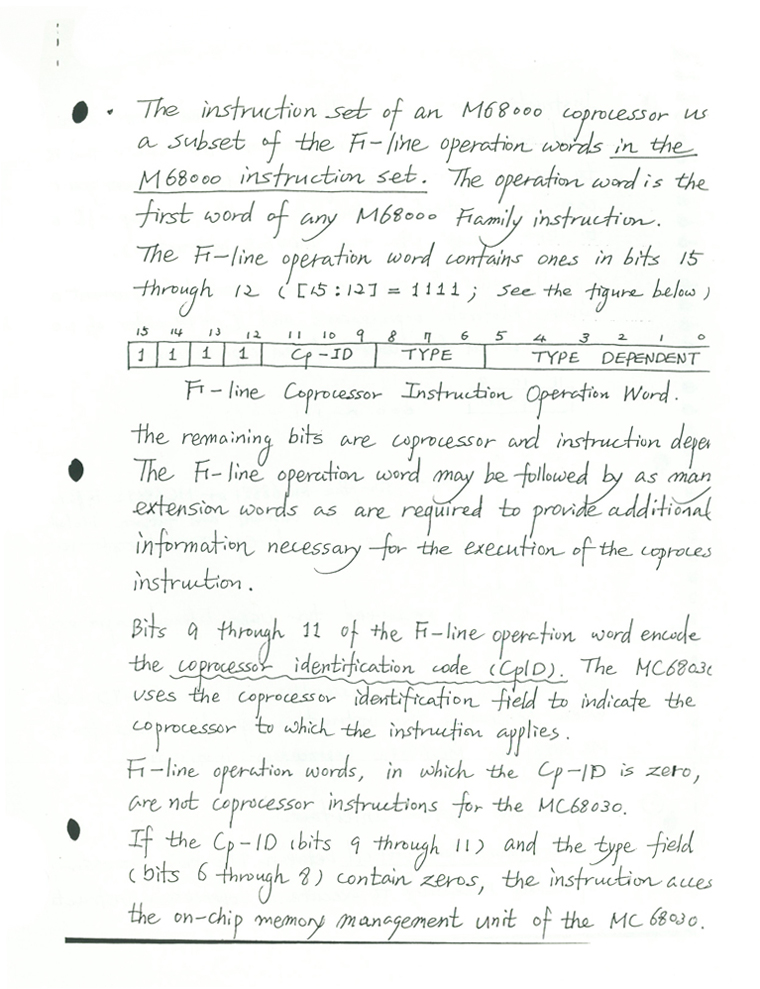 · The instruction set of an M68000 coprocessor us
a subset of the F-line operation words in the
M68000 instruction set. The operation word is the
first word of any M68000 Family instruction.
The F-line operation word contains ones in bits 15
through 12 ([15:12] = 1111; see the figure below)
15 14 13 12 11 10 9 8 7 6 5 4 3 2 1 0
1 1 1 1 Cp-ID TYPE TYPE DEPENDENT
F-line Coprocessor Instruction Operation Word.
the remaining bits are coprocessor and instruction depen
The F-line operation word may be followed by as man
extension words as are required to provide additional
information necessary for the execution of the coproces
instruction.
Bits 9 through 11 of the F-line operation word encode
the coprocessor identification code (CpID). The MC6803(
uses the coprocessor identification field to indicate the
coprocessor to which the instruction applies.
F-line operation words, in which the Cp-ID is zero,
are not coprocessor instructions for the MC68030.
If the Cp-ID (bits 9 through 11) and the type field
(bits 6 through 8) contain zeros, the instruction acces
the on-chip memory management unit of the MC 68030.